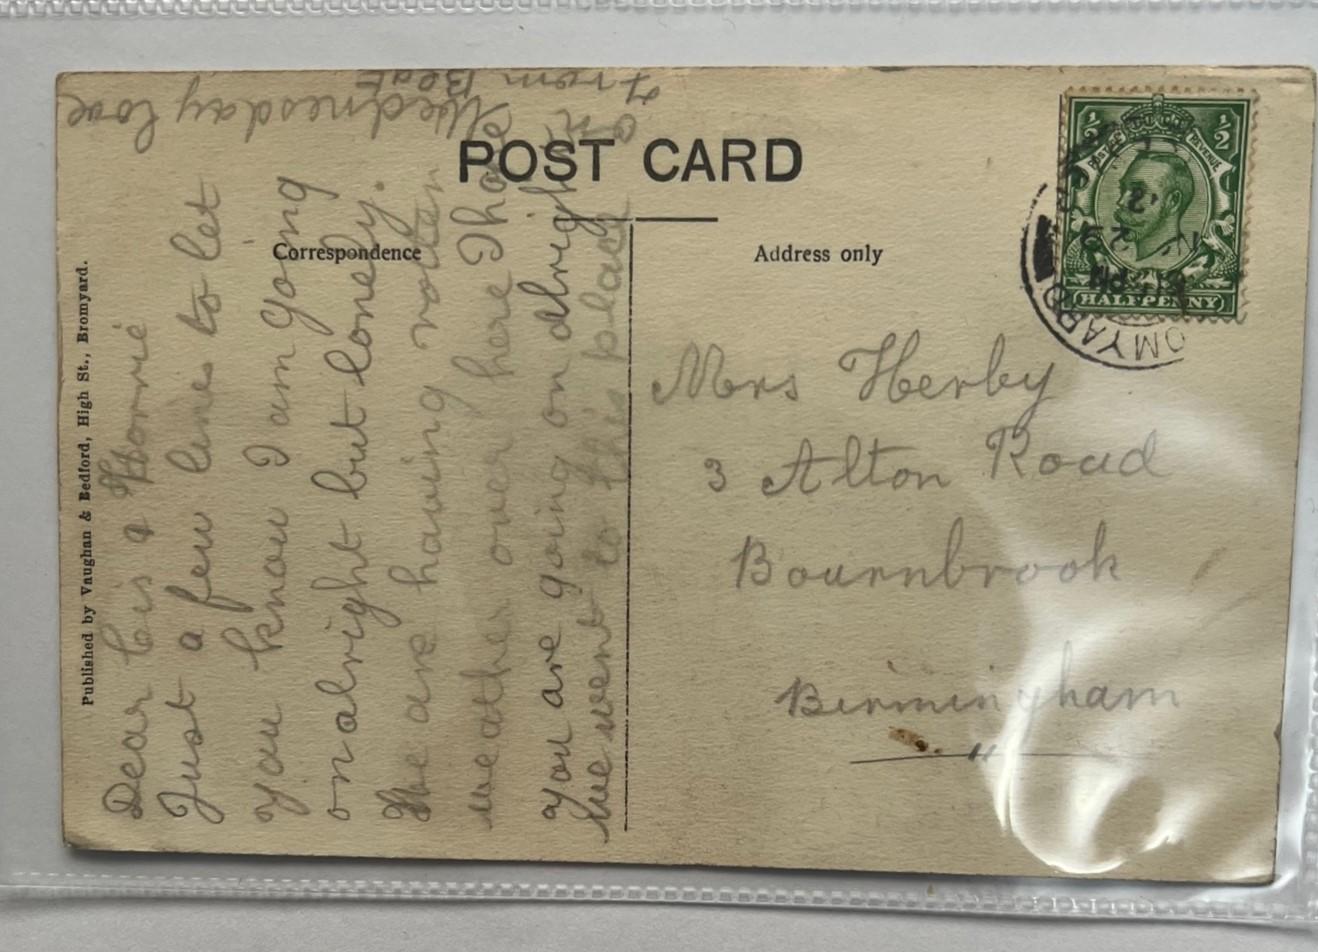 POST CARD
Correspondence
Address only
Published by Vaughan & Bedford, High St., Bromyard.
Dear Cis a Horrie
Just a few lines to let
you know I am gong
on alright but lonely.
We are having rotten
weather over here I hope
you are going on alright
we went to this place
on Wednesday love
from Beat
Mrs Herby
3 Alton Road
Bournbrook
Birmingham
"
½ ½
POSTAGE REVENUE
HALFPENNY
PM
OMYARD